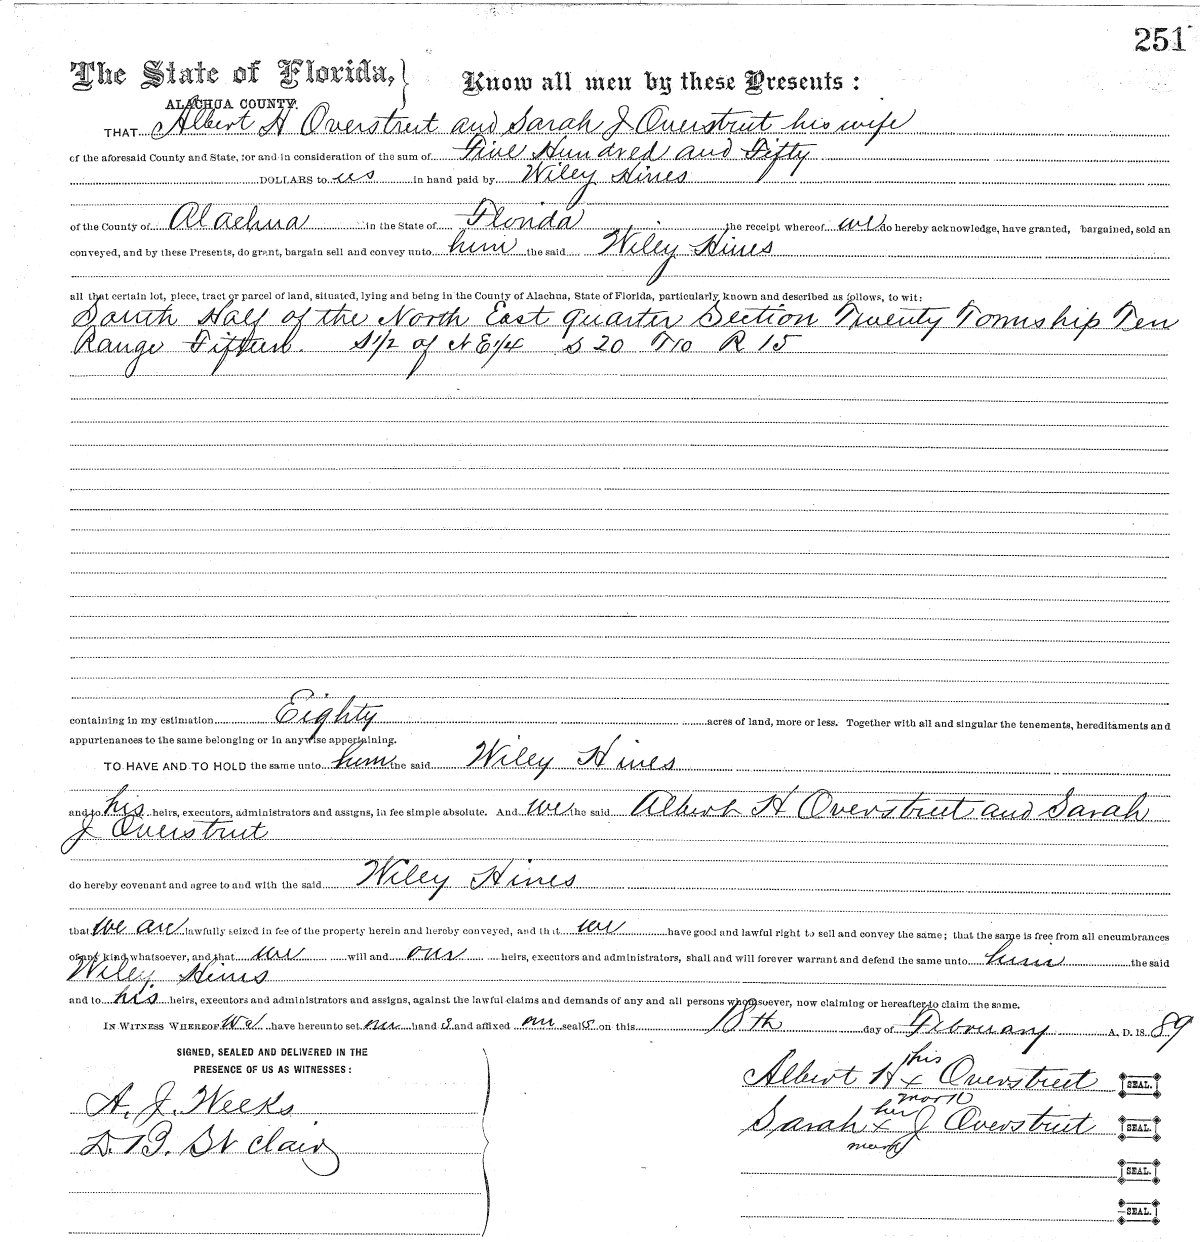 251
The State of Florida,
Know all men by these Presents:
ALACHUA COUNTY.
THAT Albert H Overstreet and Sarah J Overstreet his wife
of the aforesaid County and State, for and in consideration of the sum of Five Hundred and Fifty
DOLLARS to us in hand paid by Wiley Hines
of the County of Alachua in the State of Florida the receipt whereof we do hereby acknowledge, have granted, bargained, sold an
conveyed, and by these Presents, do grant, bargain sell and convey unto him the said Wiley Hines
all that certain lot, piece, tract or parcel of land, situated, lying and being in the County of Alachua, State of Florida, particularly known and described as follows, to wit:
South Half of the North East quarter Section Twenty Township Ten
Range Fifteen. S 1/2 of N E 1/4 S 20 T10 R 15
containing in my estimation Eighty acres of land, more or less. Together with all and singular the tenements, hereditaments and
appurtenances to the same belonging or in anywise appertaining.
TO HAVE AND TO HOLD the same unto him the said Wiley Hines
and to his heirs, executors, administrators and assigns, in fee simple absolute. And we the said Albert H Overstreet and Sarah
J Overstreet
do hereby covenant and agree to and with the said Wiley Hines
that we are lawfully seized in fee of the property herein and hereby conveyed, and that we have good and lawful right to sell and convey the same; that the same is free from all encumbrances
of any kind whatsoever, and that we will and our heirs, executors and administrators, shall and will forever warrant and defend the same unto him the said
Wiley Hines
and to his heirs, executors and administrators and assigns, against the lawful claims and demands of any and all persons whomsoever, now claiming or hereafter to claim the same.
IN WITNESS WHEREOF We have hereunto set our hand s and affixed our seal s on this 18th day of February A. D. 18 89
SIGNED, SEALED AND DELIVERED IN THE
PRESENCE OF US AS WITNESSES:
A. J. Weeks
D. B. St Clair
his
Albert H x Overstreet SEAL.
mark
her
Sarah x J Overstreet SEAL.
mark
SEAL.
SEAL.